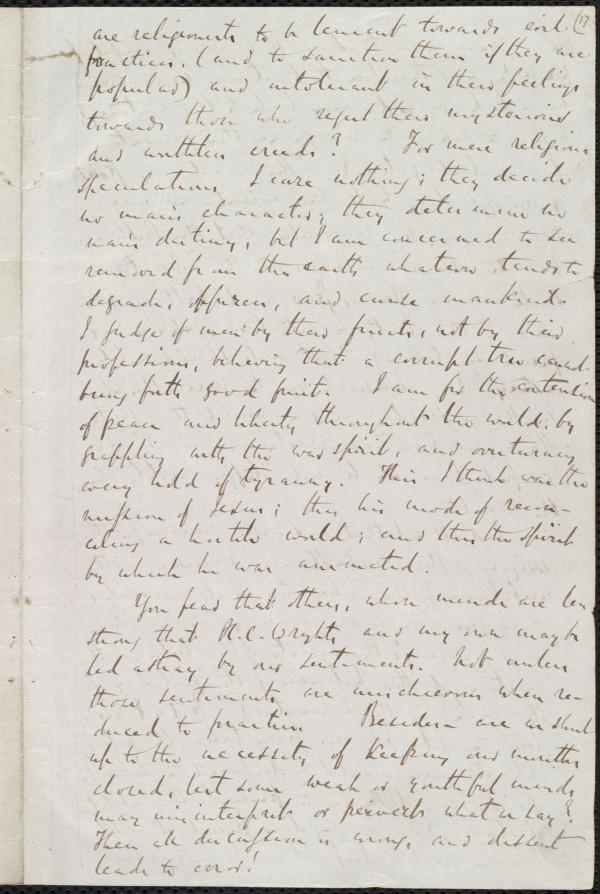 (17
are religionists to be lenient towards evil
practices, (and to sanction them if they are
popular) and intolerant in their feelings
towards those who reject their mysterious
and worthless creeds? For mere religious
speculations I care nothing; they decide
no man's character; they determine no
man's destiny; but I am concerned to see
removed from the earth whatever tends to
degrade, oppress, and curse mankind.
I judge of men by their fruits, not by their
professions, believing that a corrupt tree cannot
bring forth good fruit. I am for the
of peace and liberty throughout the world, by
grappling with the war spirit, and overturning
every hold of tyranny. This I think was the
mission of Jesus; this his mode of recon-
ciling a hostile world; and this the spirit
by which he was animated.
You fear that others, whose minds are less
strong than H. C. Wright's and my own may be
led astray by our sentiments. Not unless
those sentiments are mischievous when re-
duced to practice. Besides are we shut
up to the necessity of keeping our mouths
closed, lest some weak or youthful minds
may misinterpret or pervert what we say?
Then all discussion is wrong, and dissent
leads to error!